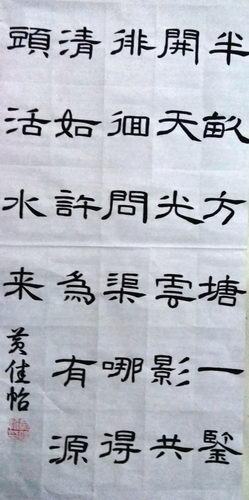 半畝方塘一鑒
開天光雲影共
徘徊問渠哪得
清如許為有源
頭活水来
黃佳怡